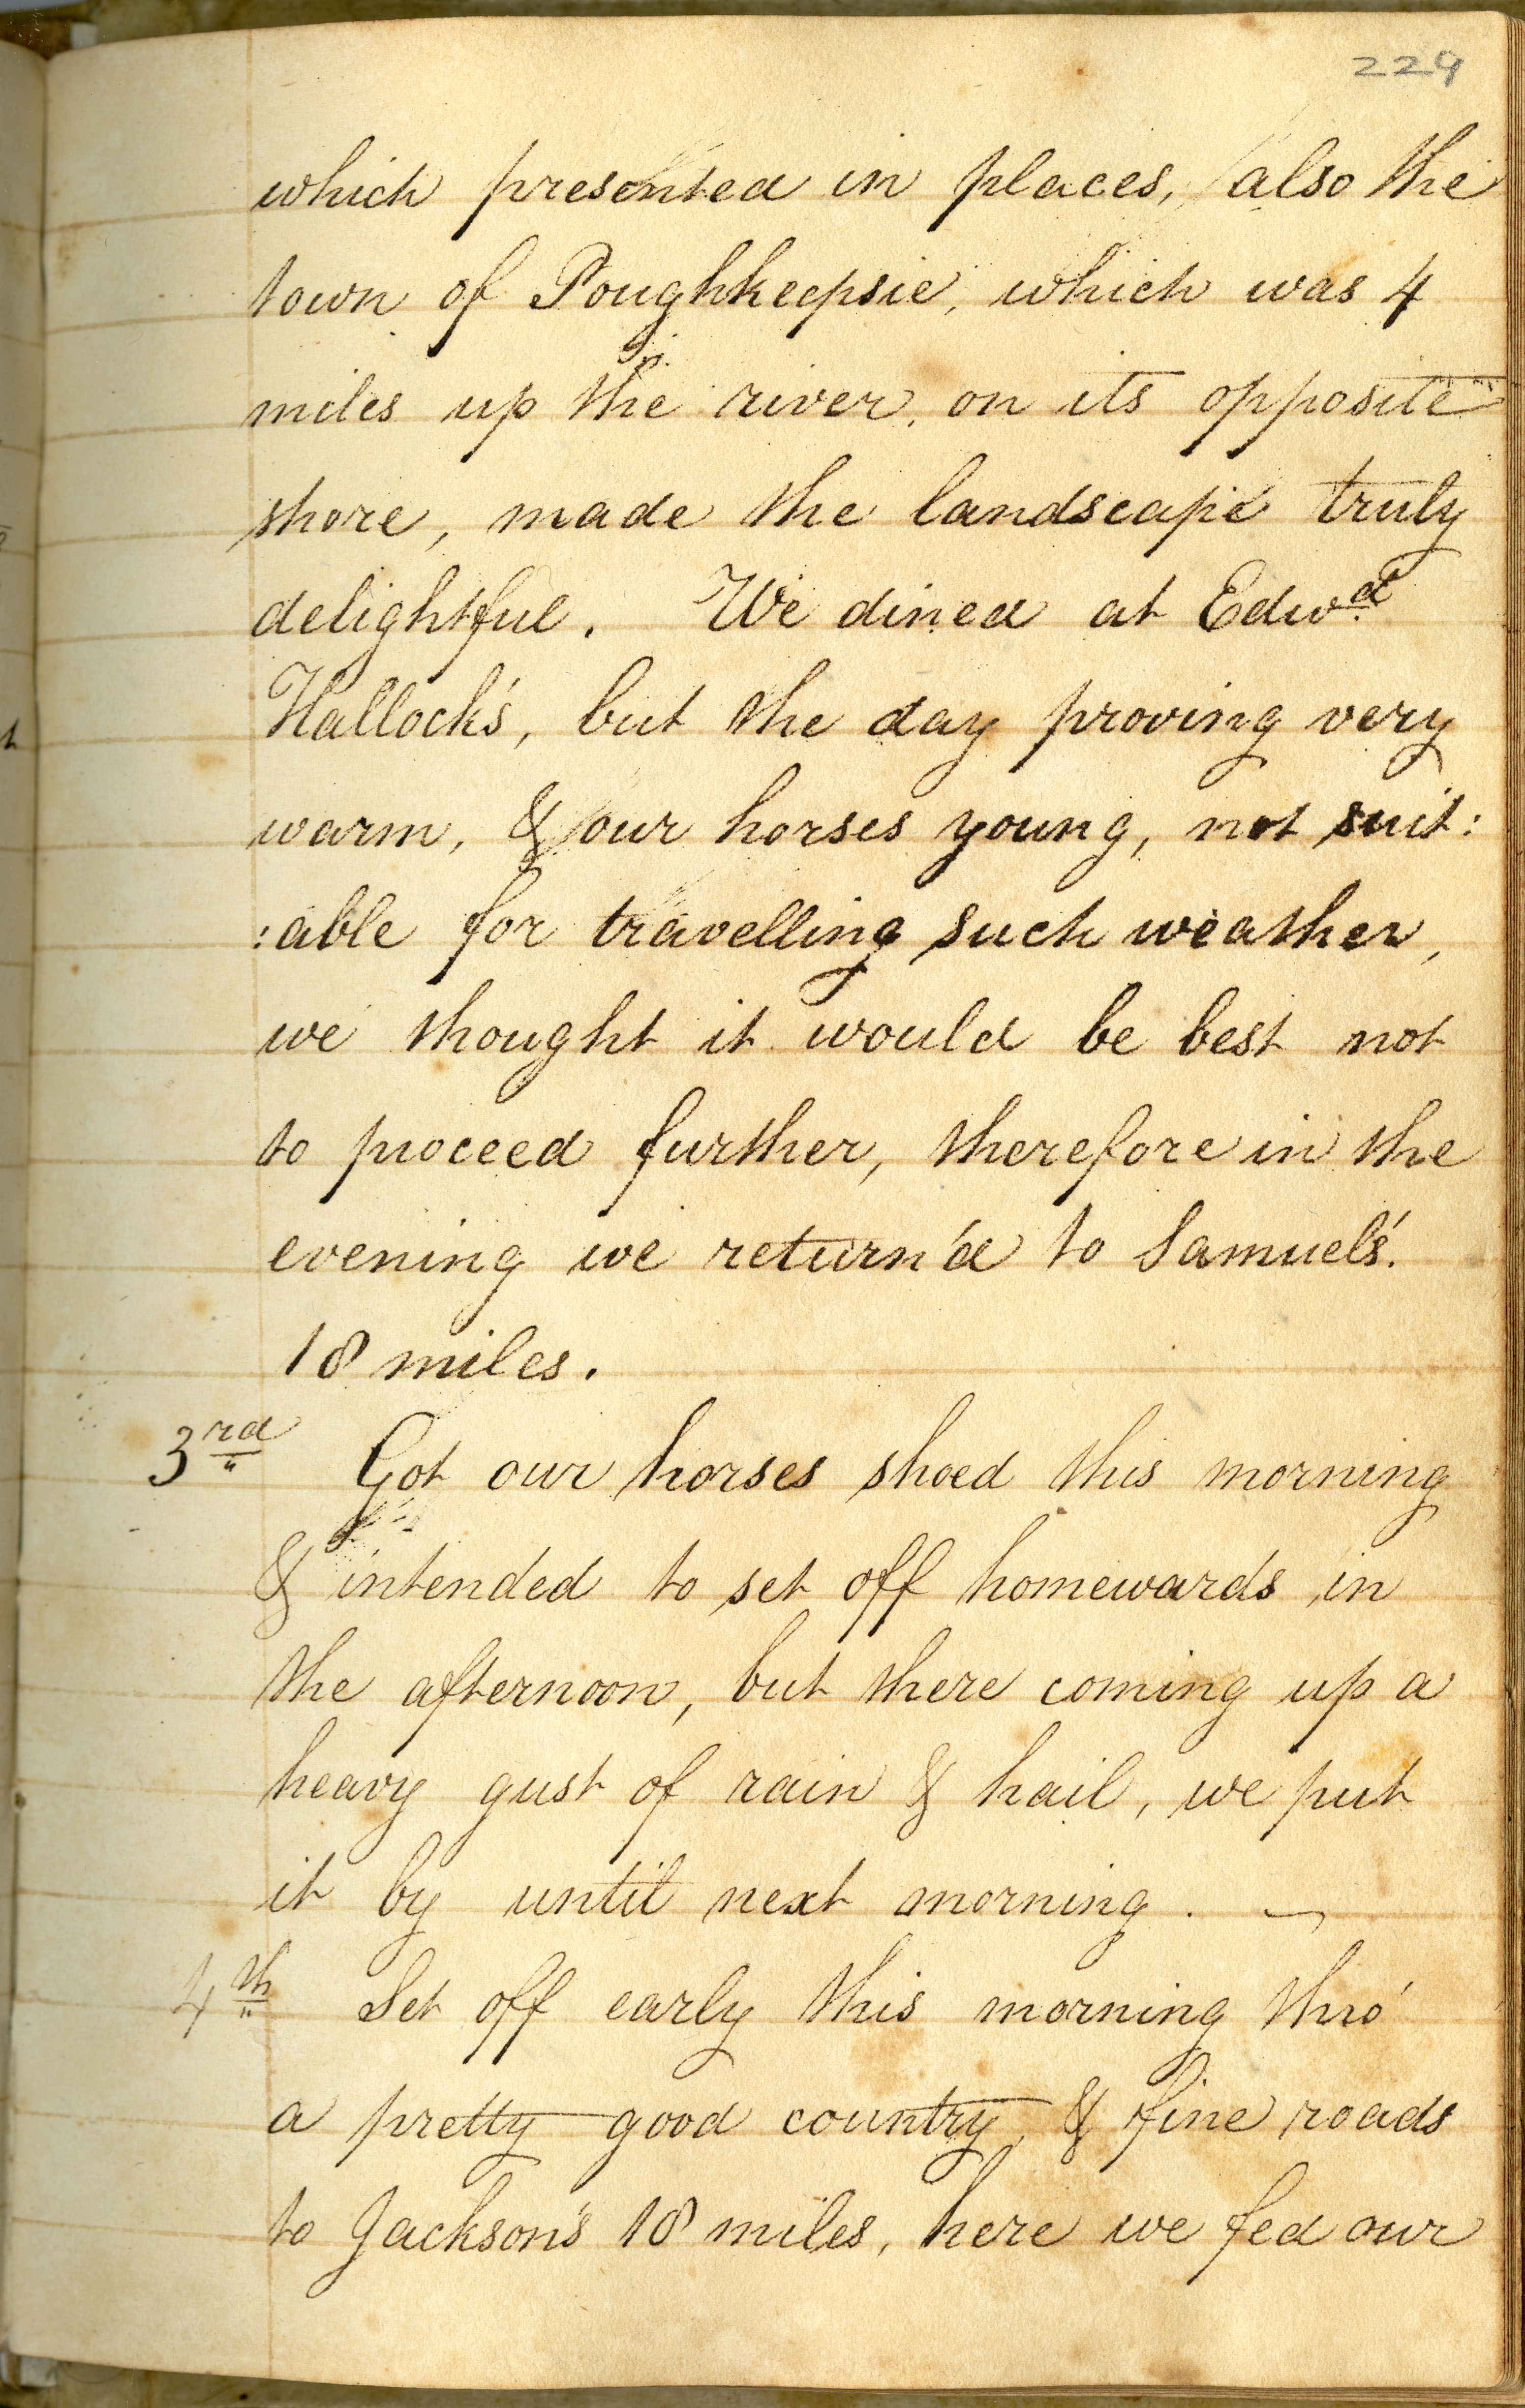 229
which presented in places, also the
town of Poughkeepsie, which was 4
miles up the river, on its opposite
shore, made the landscape truly
delightful. We dined at Edwd.
Hallock's, but the day proving very
warm, & our horses young, not suit:
:able for travelling such weather,
we thought it would be best not
to proceed further, therefore in the
evening we return'd to Samuel's.
18 miles.
3rd Got our horses shoed this morning
& intended to set off homewards in
the afternoon, but there coming up a
heavy gust of rain & hail, we put
it by until next morning. —
4th Set off early this morning thro'
a pretty good country, & fine roads
to Jackson's 18 miles, here we fed our